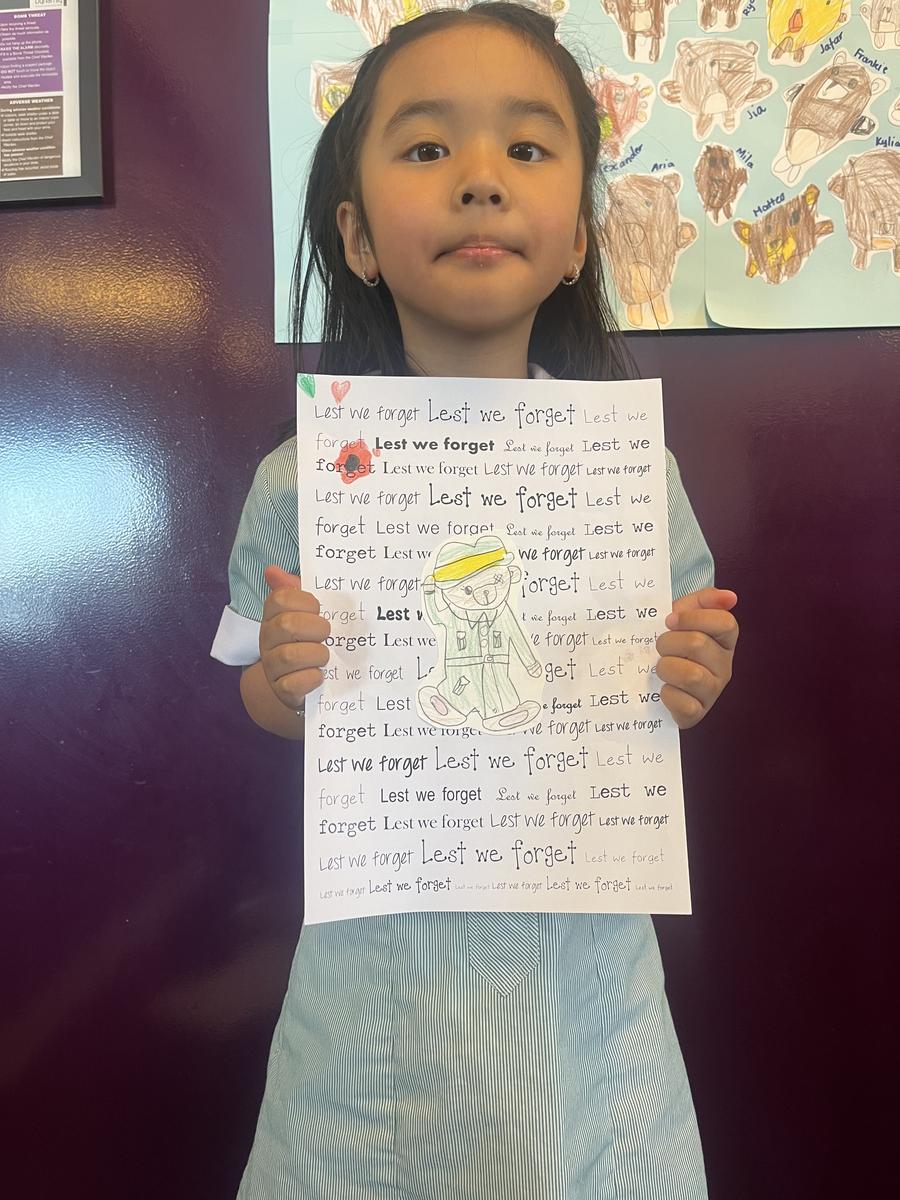 BOMB THREAT
ADVERSE WEATHER
Jafar
Frankie
Jia
exander
Aria
Mila
Matteo
Kylia
Lest we forget Lest we forget Lest we
forget Lest we forget Lest we forget Lest we
forget Lest we forget Lest we forget Lest we forget
Lest we forget Lest we forget Lest we
forget Lest we forget Lest we forget Lest we
forget Lest we forget Lest we forget
Lest we forget forget Lest we
forget Lest we forget Lest we
forget Lest we forget Lest we forget
Lest we forget get Lest we
forget Lest e forget Lest we
forget Lest we forget we forget Lest we forget
Lest we forget Lest we forget Lest we
forget Lest we forget Lest we forget Lest we
forget Lest we forget Lest we forget Lest we forget
Lest we forget Lest we forget Lest we forget
Lest we forget Lest we forget Lest we forget Lest we forget Lest we forget Lest we forget